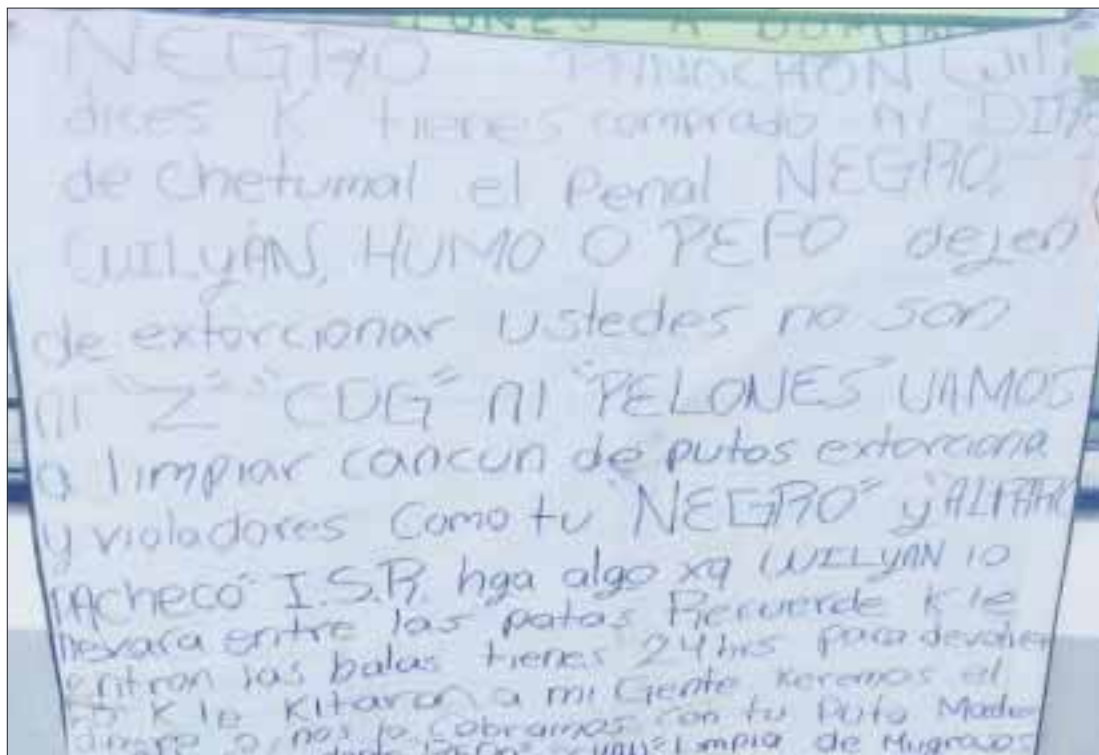 LUNES A DOMIN
NEGRO PINOCHON Wili
dices K tienes comprado al DIRE
de chetumal el Penal NEGRO,
WILYAN, HUMO O PEFO dejen
de extorcionar ustedes no son
ni "Z" "CDG" ni "PELONES" VAMOS
a limpiar cancun de putos extorciona
y violadores como tu "NEGRO" y
PACHECO I.S.R. hga algo xq WILYAN lo
llevara entre las patas Recuerde K le
entran las balas tienes 24 hrs para devolver
K le Kitaron a mi Gente Keremos el
dinero o nos lo cobramos con tu Puta Madre
limpia de Mugrosos